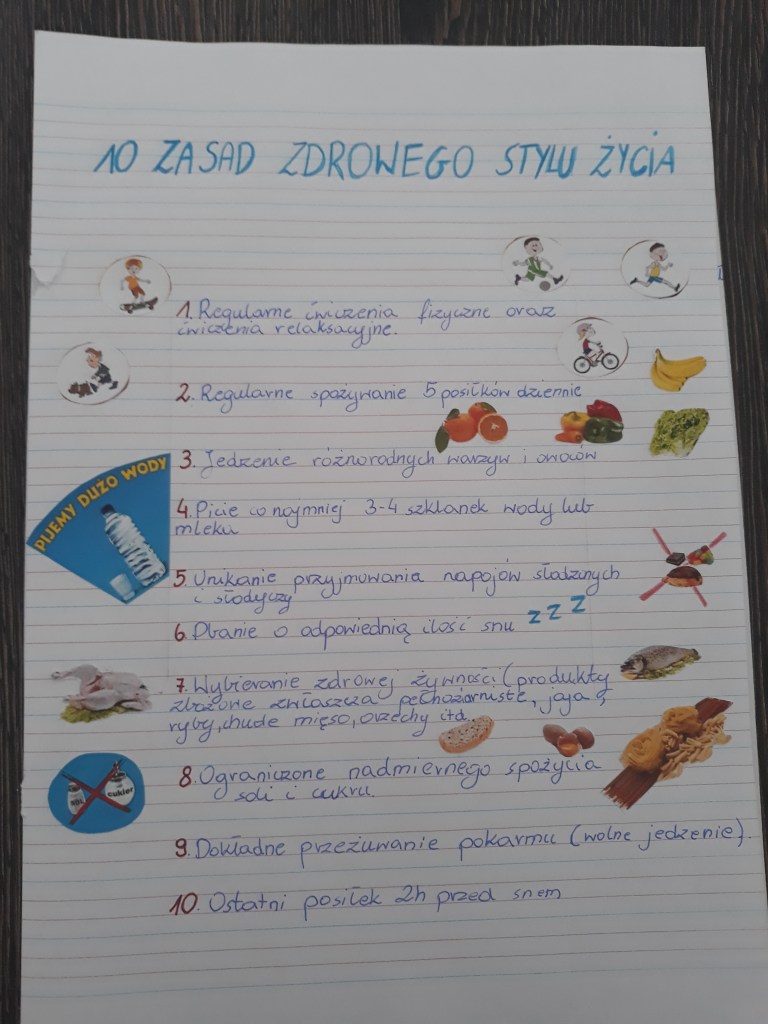 10 ZASAD ZDROWEGO STYLU ŻYCIA
1. Regularne ćwiczenia fizyczne oraz
ćwiczenia relaksacyjne.
2. Regularne spożywanie 5 posiłków dziennie
3. Jedzenie różnorodnych warzyw i owoców
PIJEMY DUŻO WODY
4. Picie co najmniej 3-4 szklanek wody lub
mleka
5. Unikanie przyjmowania napojów słodzonych
i słodyczy
6. Dbanie o odpowiednią ilość snu zzz
7. Wybieranie zdrowej żywności (produkty
zbożowe zwłaszcza pełnoziarniste, jaja,
ryby, chude mięso, orzechy itd.
8. Ograniczone nadmiernego spożycia
soli i cukru.
sól
cukier
9. Dokładne przeżuwanie pokarmu (wolne jedzenie).
10. Ostatni posiłek 2h przed snem